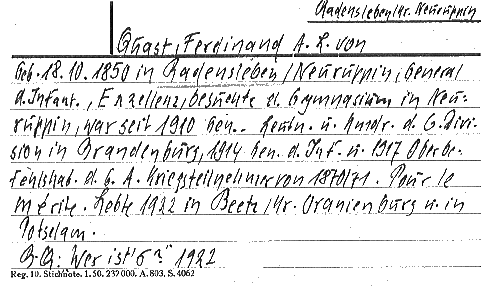 Radensleben/Kr. Neuruppin
Quast, Ferdinand A. L. von
Geb. 18.10.1850 in Radensleben/Neuruppin, General
d. Infant., Exzellenz, besuchte d. Gymnasium in Neu-
ruppin, war seit 1910 Gen.- Leutn. u. Kmdr. d. 6. Divi-
sion in Brandenburg, 1914 Gen. d. Inf. u. 1917 Oberbe-
fehlshab. d. 6. A. Kriegsteilnehmer von 1870/71. Pour le
mérite. Lebte 1922 in Beetz/Kr. Oranienburg u. in
Potsdam.
Wer ist's? 1922
Reg. 10. Stichnote. 1. 50. 232 000. A. 803. S. 4062